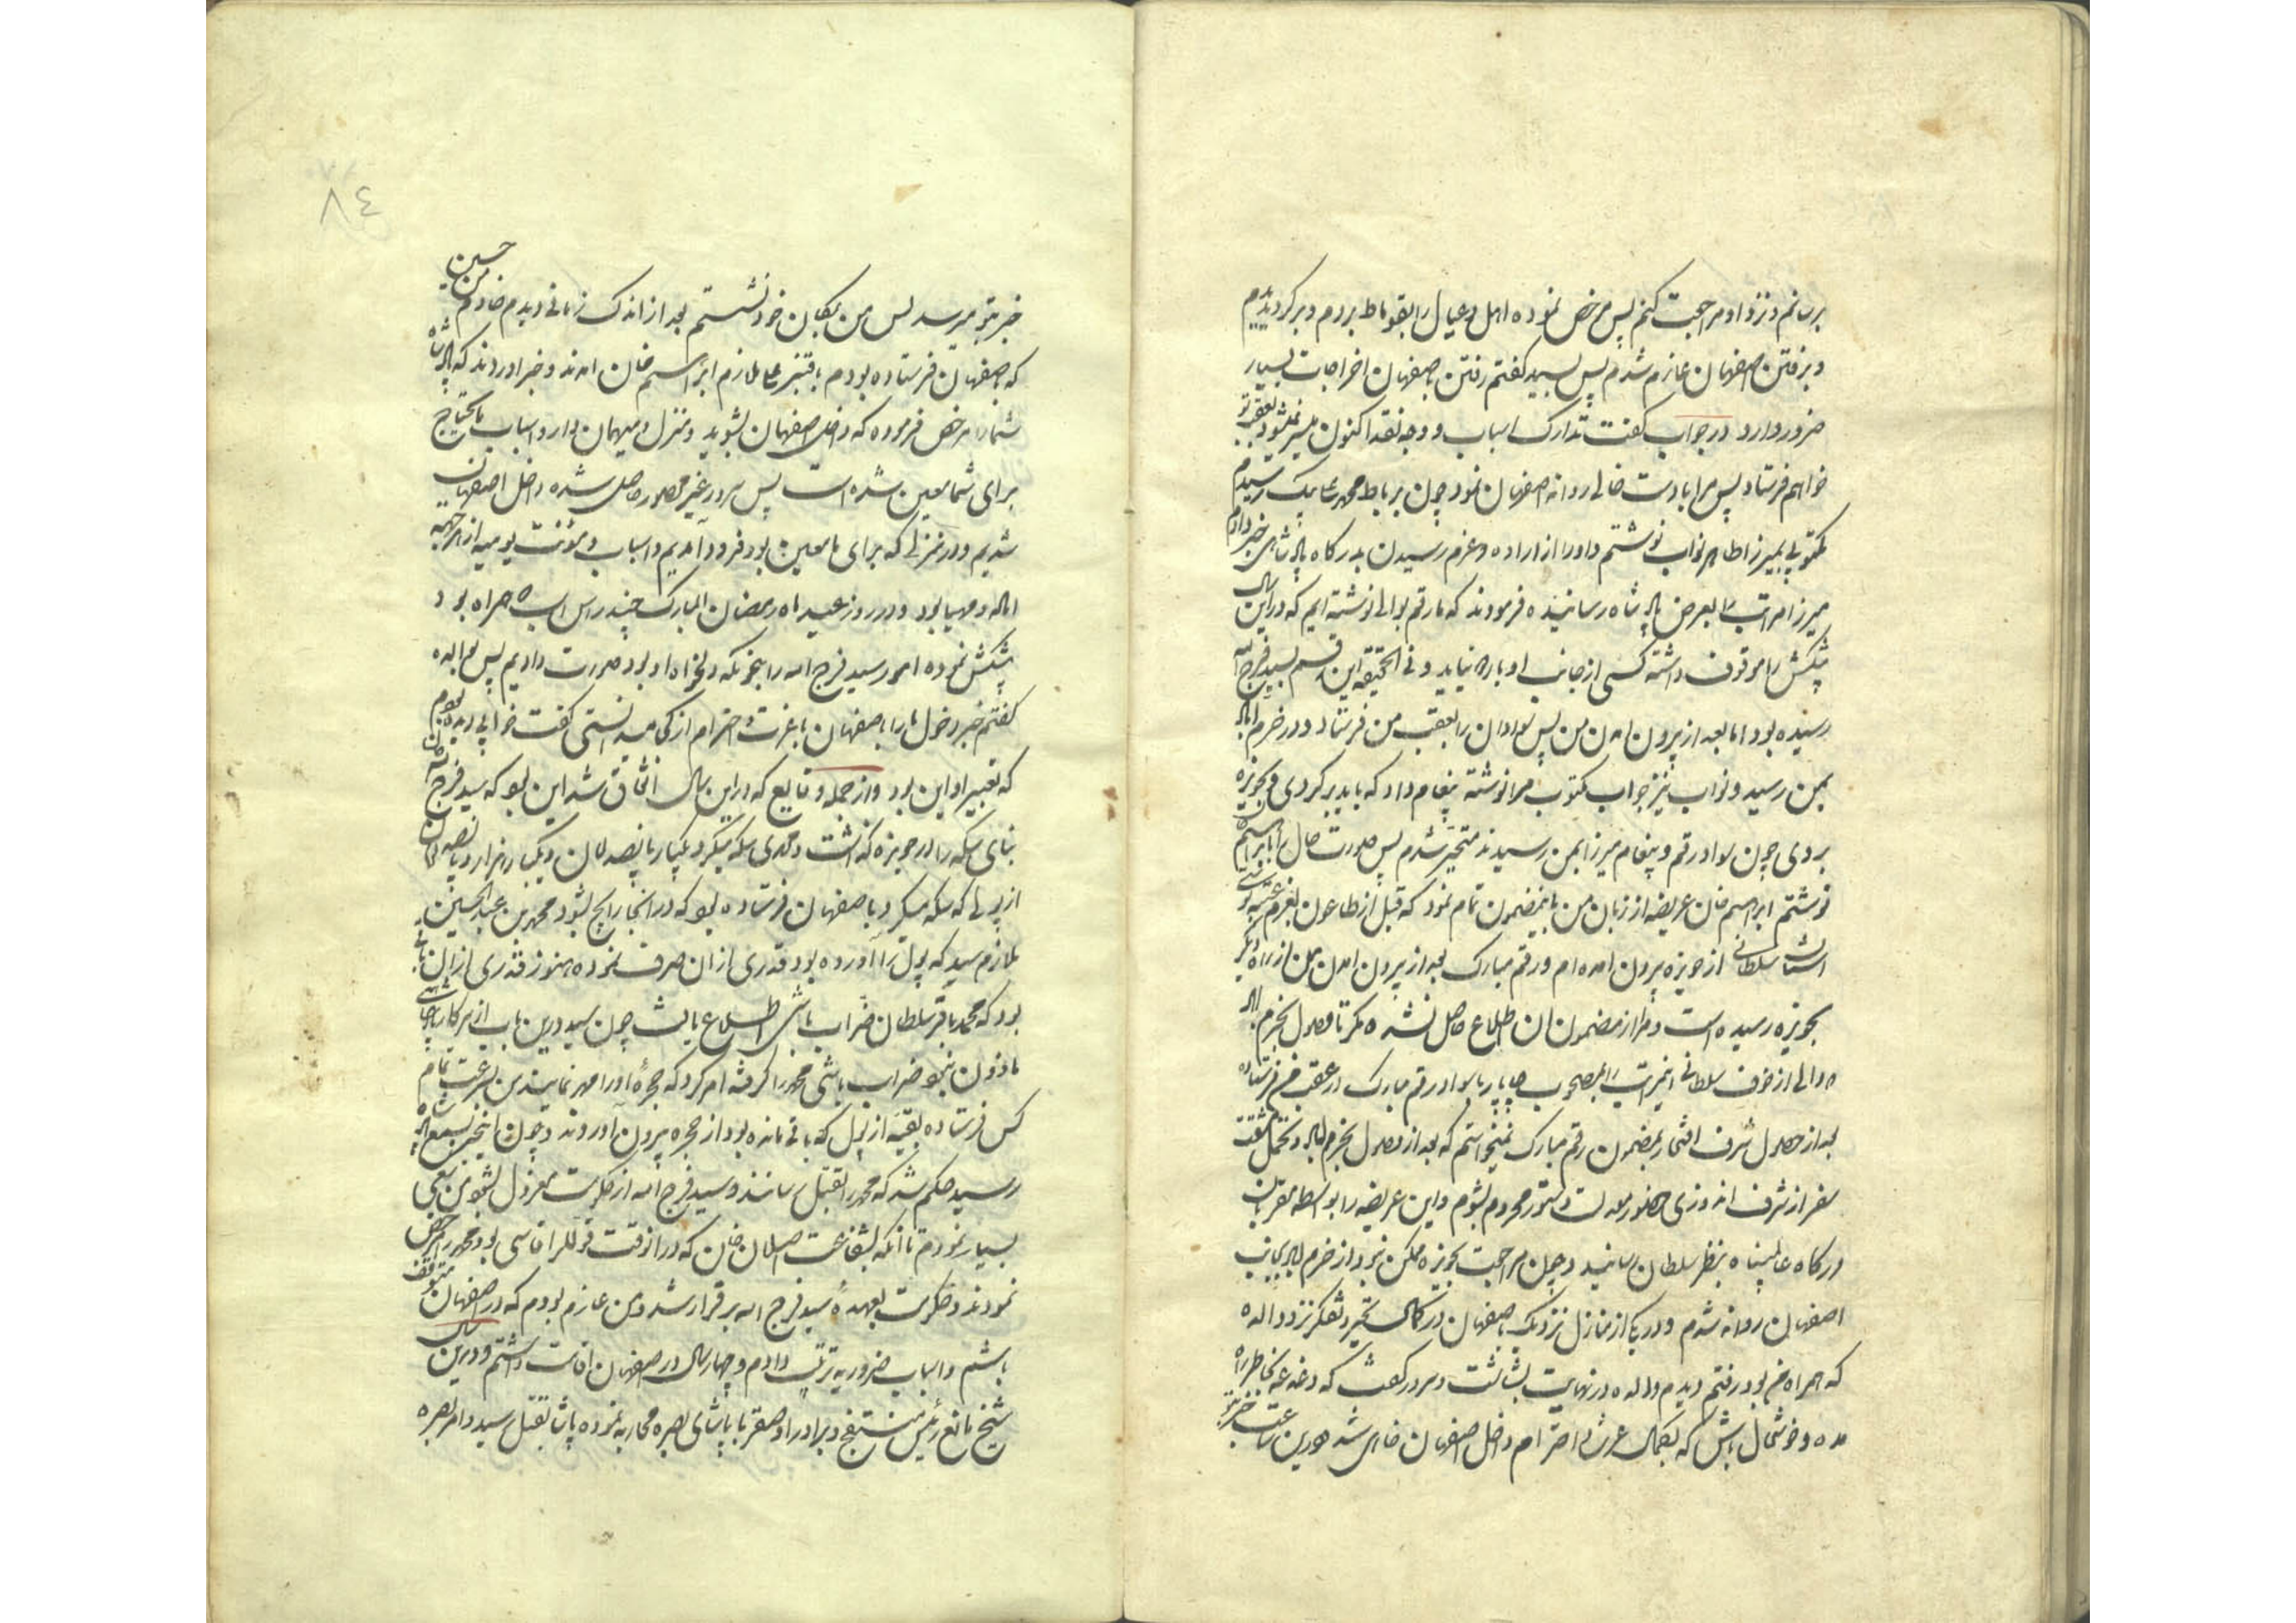 برسانم و نزد او مراجعت کنم پس مرخص نموده اهل و عیال را بقوماط بردم و برگردیدیم
و برفتن اصفهان عازم شدم پس بسید گفتم رفتن باصفهان اخراجات بسیار
ضرور دارد در جواب گفت تدارک اسباب و وجه نقد اکنون میسر نمیشود بعقب تو
خواهم فرستاد پس مرا با دست خالی روانه اصفهان نمود چون برباط محمد علی بیک رسیدم
مکتوبی بمیرزا طاهر نواب نوشتم و او را از اراده و عزم رسیدن بدرگاه پادشاهی خبر دادم
میرزا مراتب را بعرض پادشاه رسانیده فرمودند که ما رقم بوالی نوشته ایم که در این سال
پیشکش را موقوف داشته کسی از جانب او باره نیاید و فی الحقیقه این رقم بسید فرج الله
رسیده بود اما بعد از بیرون آمدن من پس سواد آن را بعقب من فرستاد و در خرم آباد
بمن رسید و نواب نیز جواب مکتوب مرا نوشته پیغام داد که باید برگردی و بحویزه
بروی چون سواد رقم و پیغام میرزا بمن رسیدند متحیر شدم پس صورت حال را بابراهیم خان
نوشتم ابراهیم خان عریضه از زبان من باینمضمون تمام نمود که قبل از طاعون بعزم عتبه بوسی
آستان سلطانی از حویزه بیرون آمده ام و رقم مبارک بعد از بیرون آمدن من از راه دیگر
بحویزه رسیده است و مرا از مضمون آن اطلاع حاصل نشده مگر تا وصول بخرم آباد
والی از خوف سلطانی اینمراتب را بمصحوب چاپار با سواد رقم مبارک در عقب من فرستاده
بعد از حصول شرف افتخار بمضمون رقم مبارک نمیخواستم که بعد از وصول بخرم آباد و تحمل مشقت
سفر از شرف اندوزی حضور معدلت دستور محروم بشوم و این عریضه را بواسطه مقربان
درگاه عالمپناه بنظر سلطان رسانید و چون مراجعت بحویزه ممکن نبود از خرم آباد بجانب
اصفهان روانه شدم و در یکی از منازل نزدیک باصفهان در کمال تحیر و تفکر نزد والده
که همراه من بود رفتم دیدم والده در نهایت بشاشت و سرور گفت که دغدغه بخاطر راه
مده و خوشحال باش که بکمال عزت و احترام داخل اصفهان خواهی شد و درین ساعت خبر
خبر بتو میرسد پس من بمکان خود نشستم بعد از اندک زمانی دیدم خادم من حسین
که باصفهان فرستاده بودم با قنبر علی ملازم ابراهیم خان آمدند و خبر آوردند که پادشاه
شما را مرخص فرموده که داخل اصفهان بشوید و منزل و میهمان دار و اسباب مایحتاج
برای شما معین شده است پس سرور غیر محصور حاصل شده داخل اصفهان
شدیم و در منزلی که برای ما معین بود فرود آمدیم و اسباب و مؤنت یومیه از هر جهة
آماده و مهیا بود و در روز عید ماه رمضان المبارک چند راس اسب همراه بود
پیشکش نموده امور سید فرج الله را بنحویکه دلخواه او بود صورت دادیم پس بوالده
گفتم خبر دخول ما را باصفهان با عزت و احترام از کجا میدانستی گفت خوابی دیده بودم
که تعبیر او این بود و از جمله وقایع که در این سال اتفاق شد این بود که سید فرج الله خان
بنای سکه را در حویزه گذاشت و محمدی سکه میکرد یکبار پانصد تومان و یکبار هزار و پانصد تومان
از پولی که سکه میکرد باصفهان فرستاده بود که در آنجا رایج بشود محمد بن عبدالحسین
ملازم سید که پول را آورده بود قدری از آن صرف نموده هنوز قدری از آن باقی
بود که محمد باقر سلطان ضراب باشی اطلاع یافت چون سید درین باب از سرکار پادشاهی
ماذون نبود ضراب باشی محمد را گرفته امر کرد که حجرهٔ او را مهر نمایند من بسرعت تمام
کس فرستاده بقیه از پول که باقی مانده بود از حجره بیرون آوردند و چون اینخبر بسمع پادشاه
رسید حکم شد که محمد را بقتل رسانند و سید فرج الله از حکومت معزول بشود من سعی
بسیار نمودم تا آنکه بشفاعت اصلان خان که در آنوقت قوللر اقاسی بود محمد را مرخص
نمودند و حکومت بعهدهٔ سید فرج الله برقرار شد و من عازم بودم که در اصفهان متوقف
باشم و اسباب ضروریه ترتیب دادم و چهار سال در اصفهان اقامت داشتم و درین سال
شیخ مانع رئیس منتفج و برادر او صقر با پاشای بصره محاربه نموده پاشا بقتل رسید و امر بصره
٨٤